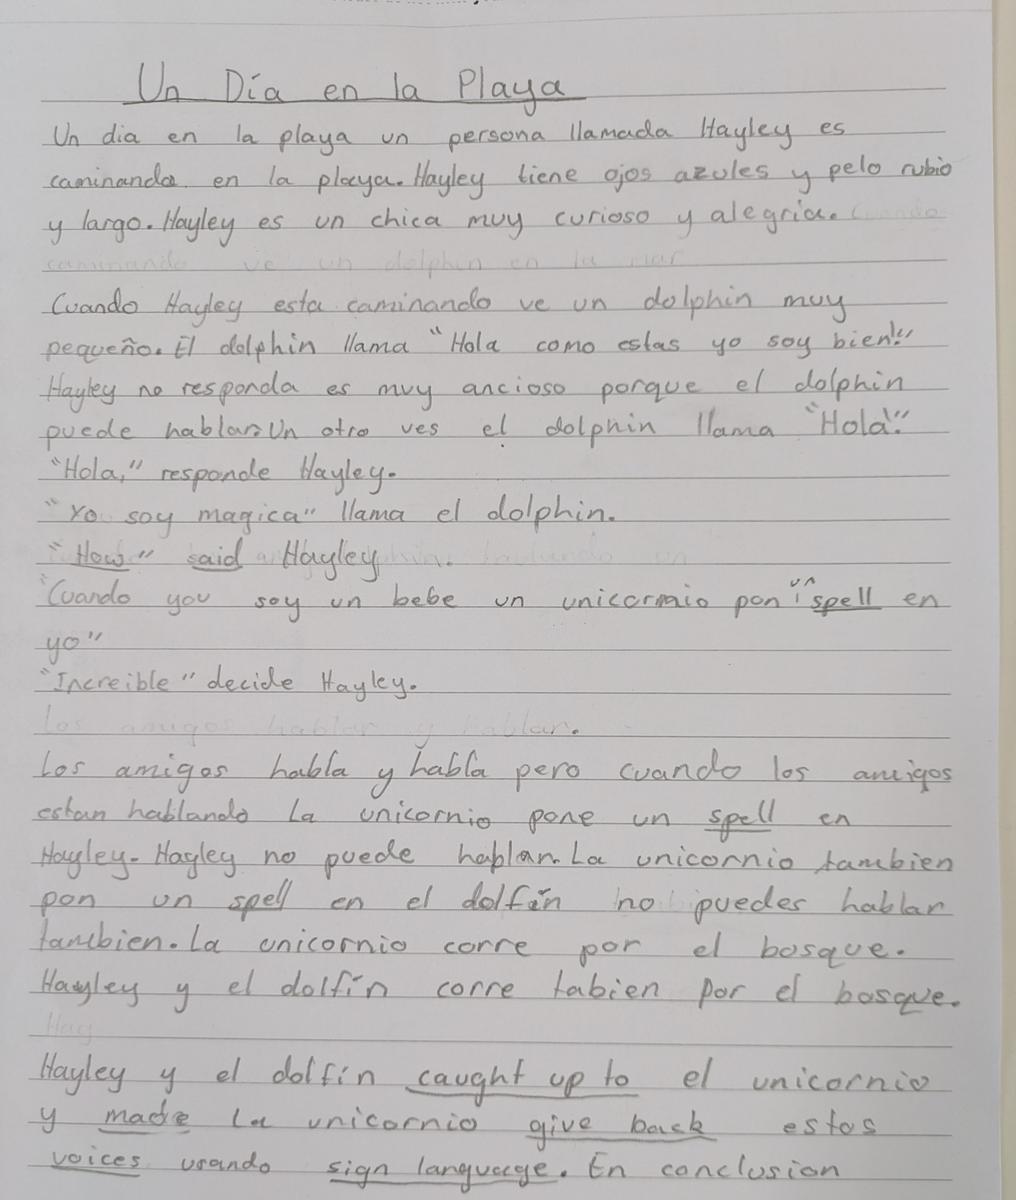 Un Día en la Playa
Un dia en la playa un persona llamada Hayley es
caminando en la playa. Hayley tiene ojos azules y pelo rubio
y largo. Hayley es un chica muy curioso y alegria. Cuando
caminando ve un dolphin en la mar
Cuando Hayley esta caminando ve un dolphin muy
pequeño. El dolphin llama "Hola como estas yo soy bien!"
Hayley no responda es muy ancioso porque el dolphin
puede hablar. Un otro ves el dolphin llama "Hola!"
"Hola," responde Hayley.
"Yo soy magica" llama el dolphin.
"How" said Hayley.
"Cuando you soy un bebe un unicornio pon un spell en
yo"
"Increible" decide Hayley.
Los amigos hablar y hablar.
Los amigos habla y habla pero cuando los amigos
estan hablando la unicornio pone un spell en
Hayley. Hayley no puede hablar. La unicornio tambien
pon un spell en el dolfín no puedes hablar
tambien. La unicornio corre por el bosque.
Hayley y el dolfín corre tabien por el bosque.
Hay
Hayley y el dolfín caught up to el unicornio
y made la unicornio give back estos
voices usando sign language. En conclusion